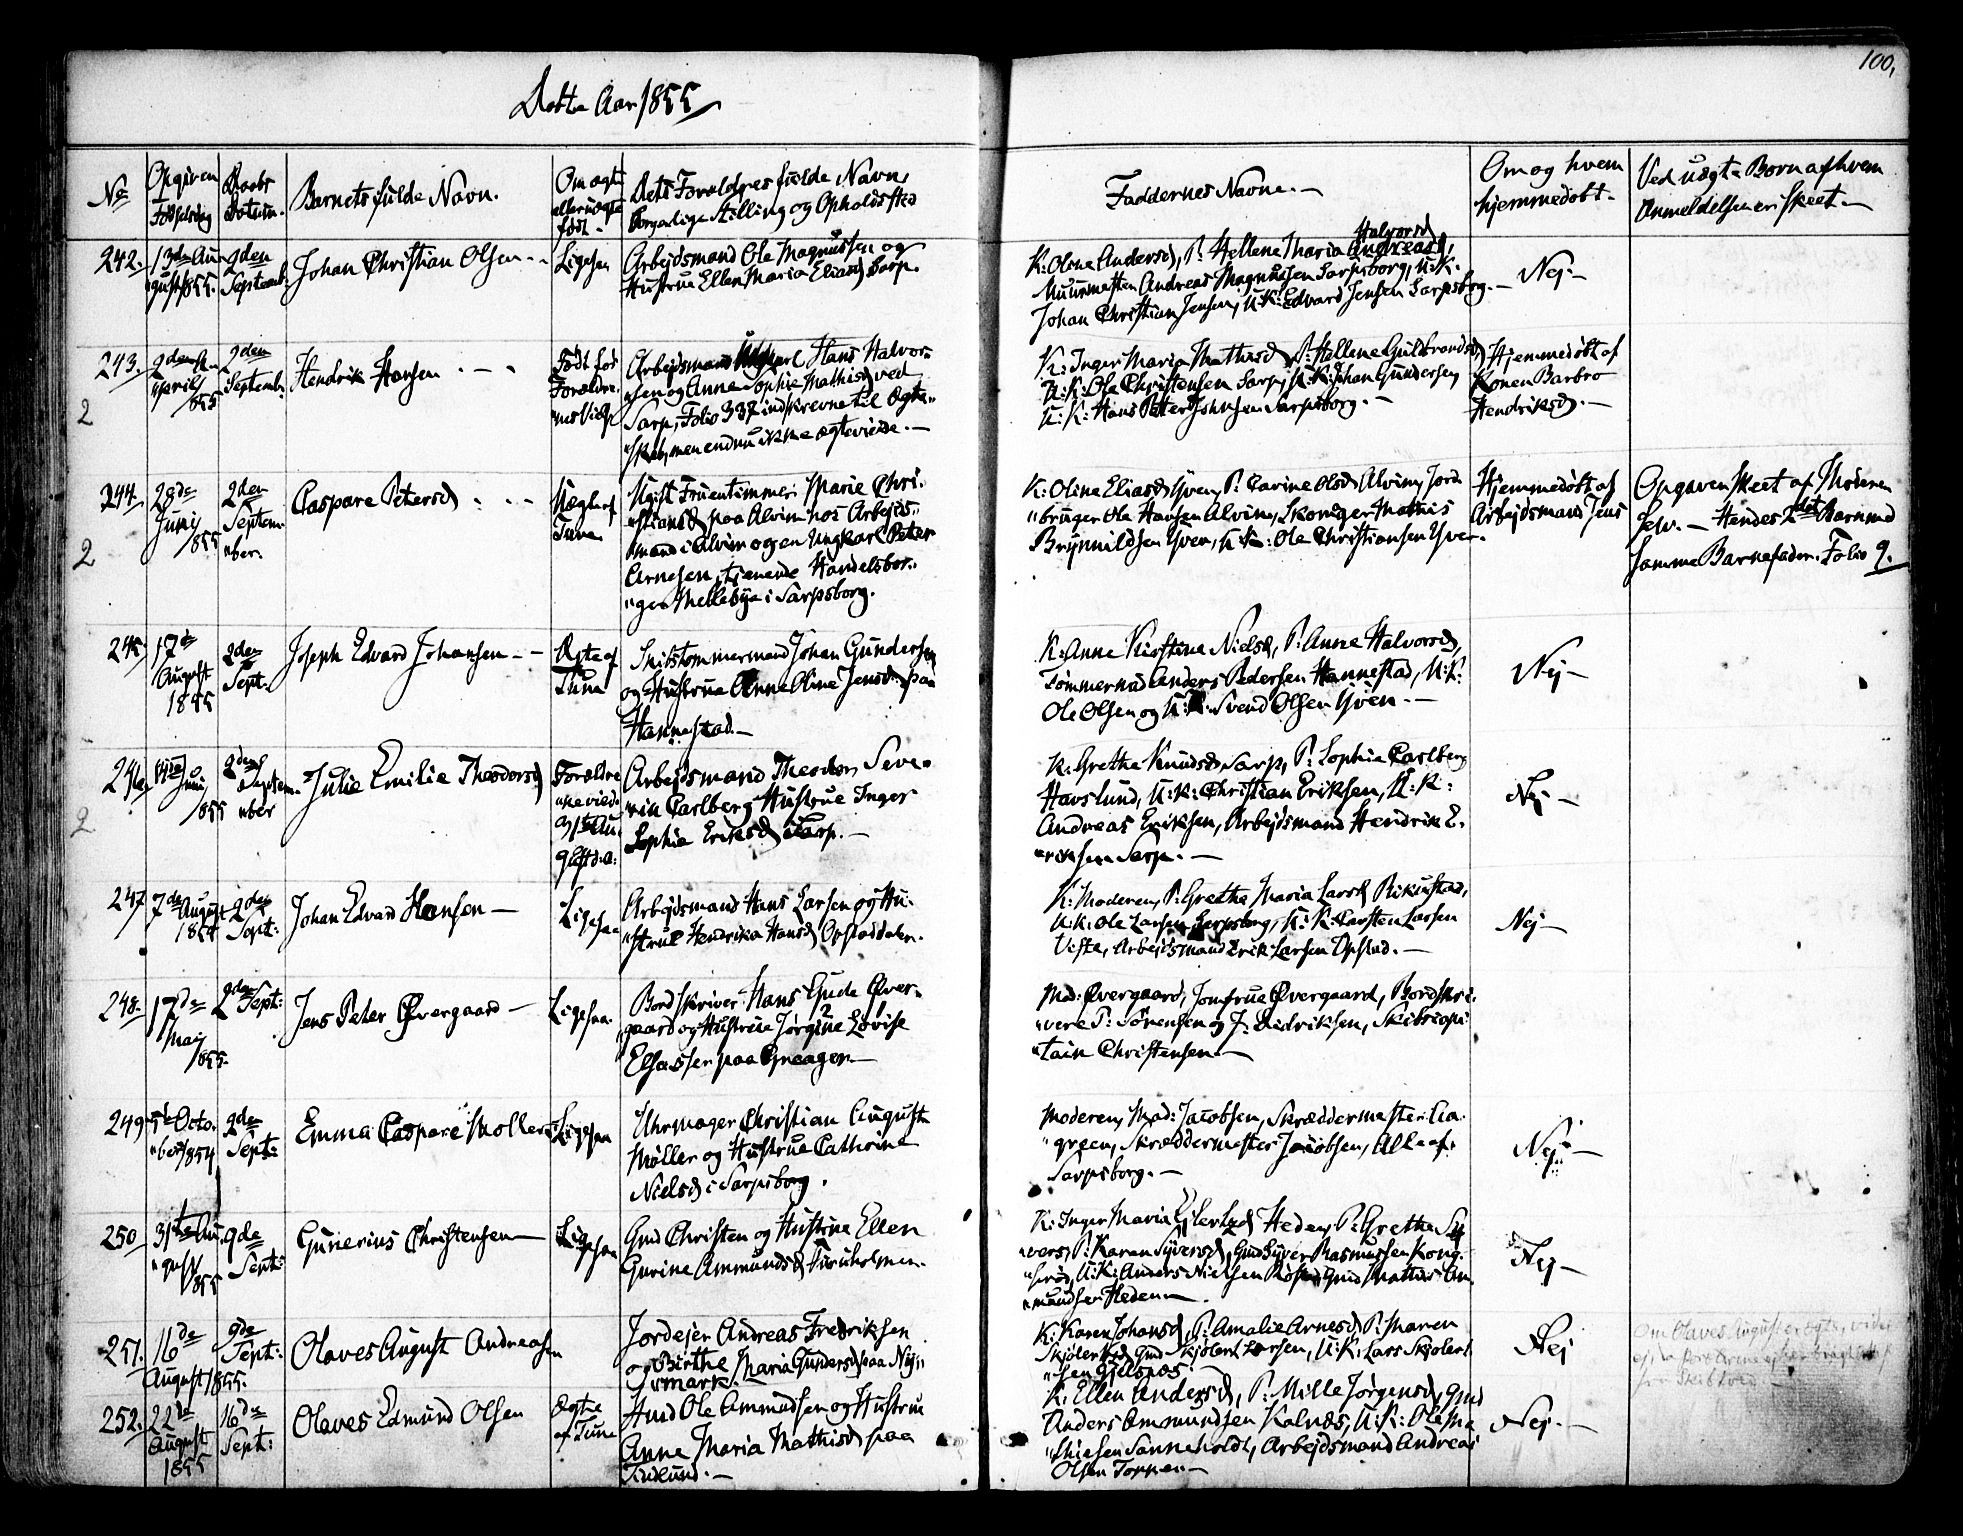 Døbte Aar 1855
100,
No
Opgiven Fødselsdag
Daabs Datum.
Barnets fulde Navn.
Om ægte eller uægte født.
Dets Forældres fulde Navn,
borgerlige Stilling og Opholdssted
Faddernes Navne. —
Om og hvem
hjemmedøbt. —
Ved uægte Børn af hvem
Anmeldelsen er skeet. —
242.
13de Au-
gust 1855.
2den
Septemb:
Johan Christian Olsen
Ligesaa
Arbejdsmand Ole Magnussen og
Hustrue Ellen Maria Eliasd Sarp.
Halvorsd
K: Oline Andersd, P: Hellene Maria Andreasd,
Muurmester Andreas Magnussen Sarpsborg, U: K:
Johan Christian Jensen, U: K: Edvard Jensen Sarpsborg. —
Nej —
243.
2den
April
/855
2den
Septemb:
Hendrik Hansen
Født før
Forældre-
nes Vielse
Arbejdsmand Ungkarl Hans Halvor-
sen og Anne Sophie Mathisd ved
Sarp, Folio 337 indskrevne til Ægte-
skab, men endnu ikke ægteviede. —
K: Inger Maria Mathisd, P: Hellene Guldbrandsd,
U: K: Ole Christensen Sarp, U: K: Johan Gundersen,
U: K: Hans Petter Johnsen Sarpsborg. —
Hjemmedøbt af
Konen Barbro
Hendriksd. —
2
244.
28de
Junij
/855
2den
Septem-
ber.
Caspare Petersd
Uægte af
Tune
Ugift Fruentimmer Marie Chri-
stiansd paa Alvim hos Arbejds-
mand i Alvim og en Ungkarl Peter
Arnesen, tjenende Handelsbor-
ger Mellebye i Sarpsborg.
K: Oline Eliasd Yven, P: Carine Olsd Alvim, Jord-
bruger Ole Hansen Alvim, Skomager Mathis
Brynnildsen Yven, U: K: Ole Christiansen Yven.
Hjemmedøbt af
Arbejdsmand Jens
Opgaven skeet af Moderen
selv. — Hendes 2det Barn med
samme Barnefader. Folio 9.
2
245.
17de
August
1855
2den
Sept:
Joseph Edvard Johansen
Ægte af
Tune
Skibstømmermand Johan Gundersen
og Hustrue Anne Oline Jensd paa
Hannestad. —
K: Anne Kirstine Nielsd, P: Anne Halvorsd,
Tømmermd Anders Pedersen Hannestad, U: K:
Ole Olsen og U: K: Svend Olsen Yven. —
Nej —
246.
Juni
/855
2den
Septem-
ber
Julie Emilie Theodorsd
Forældre-
ne viede
Arbejdsmand Theodor Seve-
rin Carlberg Hustrue Inger
Sophie Eriksd i Sarp. —
K: Grethe Knudsd Sarp, P: Sophie Carlberg
Havslund, U: K: Christian Eriksen, U: K:
Andreas Eriksen, Arbejdsmand Hendrik E-
riksen Sarp. —
Nej —
2
247
7de August
1855
2den
Sept:
Johan Edvard Hansen —
Ligesaa
Arbejdsmand Hans Larsen og Hu-
strue Hendrika Hansd Opstaddalen.
K: Moderen, P: Grethe Maria Larsd Rikustad,
U: K: Ole Larsen Sarpsborg, U: K: Carsten Larsen
Viste, Arbejdsmand Erik Larsen Opstad. —
Nej —
248.
17de
Maij
/855.
2den Sept:
Jens Peter Øvergaard —
Ligesaa.
Bordskriver Hans Gude Øver-
gaard og Hustrue Jørgine Lovise
Elsasser paa Greaager —
Mad: Øvergaard, Jomfrue Øvergaard, Bordskri-
vere P: Sørensen og J: Didriksen, Skibscapi-
tain Christensen. —
249
5te Octo-
ber 1854
9de
Sept:
Emma Caspare Møller
Ligesaa
Uhrmager Christian August
Møller og Hustrue Cathrine
Nielsd i Sarpsborg.
Moderen, Mad: Jacobsen, Skræddermester Lia-
green, Skræddermester Jacobsen, Alle af
Sarpsborg. —
Nej —
250
31te Au-
gust
/855
9de
Sept:
Gunerius Christensen
Ligesaa
Gmd Christen og Hustrue Ellen
Gurine Ammundsd Furuholmen.
K: Inger Maria Ejlertsd Heden, P: Grethe Sy-
vers, P: Karen Syversd, Gmd Syver Rasmussen Kong-
serød, U: K: Anders Nielsen, Gmd Mathis Am-
mundsen Heden —
Nej —
251.
16de
August 1855.
9de
Sept:
Olaves August Andreasen
Jordejer Andreas Fredriksen
og Birthe Maria Gundersd paa Nÿ-
mark. —
K: Karen Johansd, P: Amalie Arnesd, P: Maren
Skjølertsd, Gmd Skjølert Larsen, U: K: Lars Skjølert-
sen Gjelsnæs.
Nej
Om Olaves August
252.
22de
August
1855
16de
Sept:
Olaves Edmund Olsen
Ægte
af Tune
Husd Ole Ammundsen og Hustrue
Anne Maria Mathisd paa
Tindlund. —
K: Ellen Andersd, P: Mille Jørgensd, Gmd
Anders Ammundsen Kalnæs, U: K: Ole Ma-
thiesen Sanneholdt, Arbejdsmand Andreas
Olsen Torpen —
Nej —